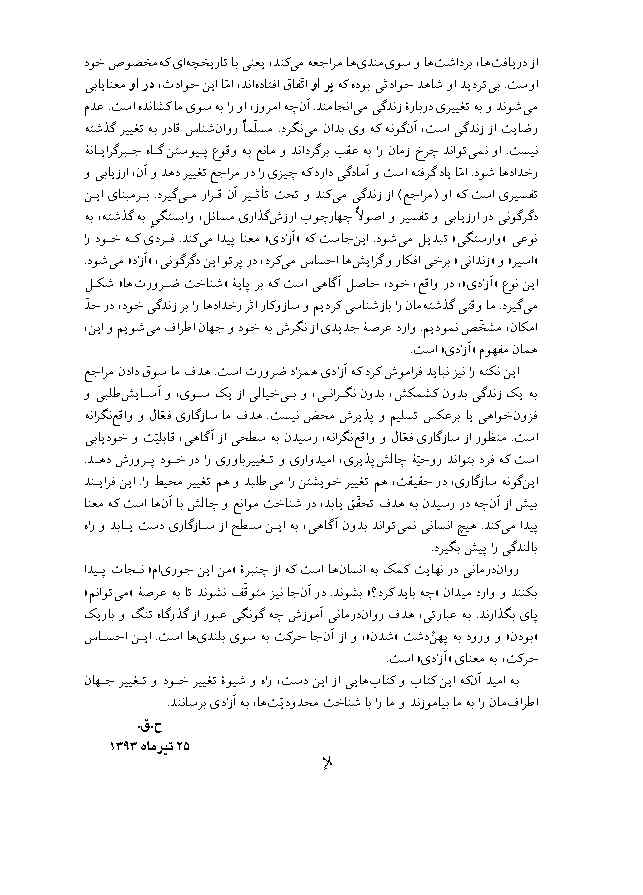 از دریافت‌ها، برداشت‌ها و سوی‌مندی‌ها مراجعه می‌کند، یعنی با تاریخچه‌ای‌که مخصوص خود
اوست. بی‌تردید او شاهد حوادثی بوده که بر او اتّفاق افتاده‌اند، امّا این حوادث، در او معنایابی
می‌شوند و به تغییری دربارهٔ زندگی می‌انجامند. آن‌چه امروز، او را به سوی ما کشانده است. عدم
رضایت از زندگی است، آن‌گونه که وی بدان می‌نگرد. مسلّماً روان‌شناس قادر به تغییر گذشته
نیست. او نمی‌تواند چرخ زمان را به عقب برگرداند و مانع به وقوع پیـوستن گـاه جبـرگرایـانهٔ
رخدادها شود. امّا پا گرفته است و آدمی‌گاه در چیزی را در مراجع تغییر دهد و آن، ارزیابی و
تفسیری است که او (مراجع) از زندگی می‌کند و تحت تـأثیـر آن قـرار مـی‌گیرد. بـرمبنای ایـن
گردگونی در ارزیابی و تفسیر و اصولاً چهارچوب ارزش‌گذاری مسائل، وابستگی به گذشته، به
نوعی «وارستگی» تبدیل می‌شود. این‌جاست که «آزادی» معنا پیدا می‌کند. فـردی کـه خـود را
«اسیر» و «زندانی» برخی افکار و گرایش‌ها احساس می‌کرد، در پرتو این دگرگونی، «آزاد» می‌شود.
این نوع «آزادی»، در واقع، خود، حاصل آگاهی است که بر پایهٔ «شناخت ضـرورت‌ها» شـکل
می‌گیرد. ما وقتی گذشته‌مان را بازشناسی کردیم و سازوکار اثر رخدادها را بر زندگی خود، در حدّ
امکان، مشخّص نمودیم. وارد عرصهٔ جدیدی از نگرش به خود و جهان اطراف می‌شویم و این،
همان مفهوم «آزادی» است.
این نکته را نیز نباید فراموش کرد که آزادی همزاد ضرورت است. هدف ما سوق دادن مراجع
به یک زندگی بدون کشمکش، بدون نگـرانـی، و بـی‌خیالی از یک سـوی، و آسـایش‌طلبی و
فزون‌خواهی یا برعکس تسلیم و پذیرش محض نیست. هدف ما سازگاری فعّال و واقع‌نگرانه
است. منظور از سازگاری فعّال و واقع‌نگرانه، رسیدن به سطحی از آگاهی، قابلیّت و خودیابی
است که فرد بتواند روحیّهٔ چالش‌پذیری، امیدواری و تغییـرباوری را در خـود پـرورش دهـد.
این‌گونه سازگاری، در حقیقت، هم تغییر خویشتن را می‌طلبد و هم تغییر محیط را. این فراینـد
بیش از آن‌چه در رسیدن به هدف تحقّق یابد، در شناخت موانع و چالش با آن‌ها است که معنا
پیدا می‌کند. هیچ انسانی نمی‌تواند بدون آگاهی، به ایـن سـطح از سـازگاری دست یـابـد و راه
بالندگی را پیش بگیرد.
روان‌درمانی در نهایت کمک به انسان‌ها است که از پنجرهٔ «من این جوری‌ام» نـجات پیـدا
بکنند و وارد میدان «چه باید کرد؟» بشوند. در آن‌جا نیز متوقّف نشوند تا به عرصهٔ «می‌توانم»
پای بگذارند. به عبارتی، هدف روان‌درمانی آموزش چه گونگی عبور از گذرگاه تنگ و باریک
«بودن» و ورود به پهن‌دشت «شدن»، و از آن‌جا حرکت به سوی بلندی‌ها است. ایـن احسـاس
حرکت، به معنای «آزادی» است.
به امید آن‌که این کتاب و کتاب‌هایی از این دست، راه و شیوهٔ تغییر خـود و تـغییر جهـان
اطراف‌مان را به ما بیاموزند و ما را با شناخت محدودیّت‌ها، به آزادی برسانند.
ح.ق.
۲۵ تیرماه ۱۳۹۳
لا